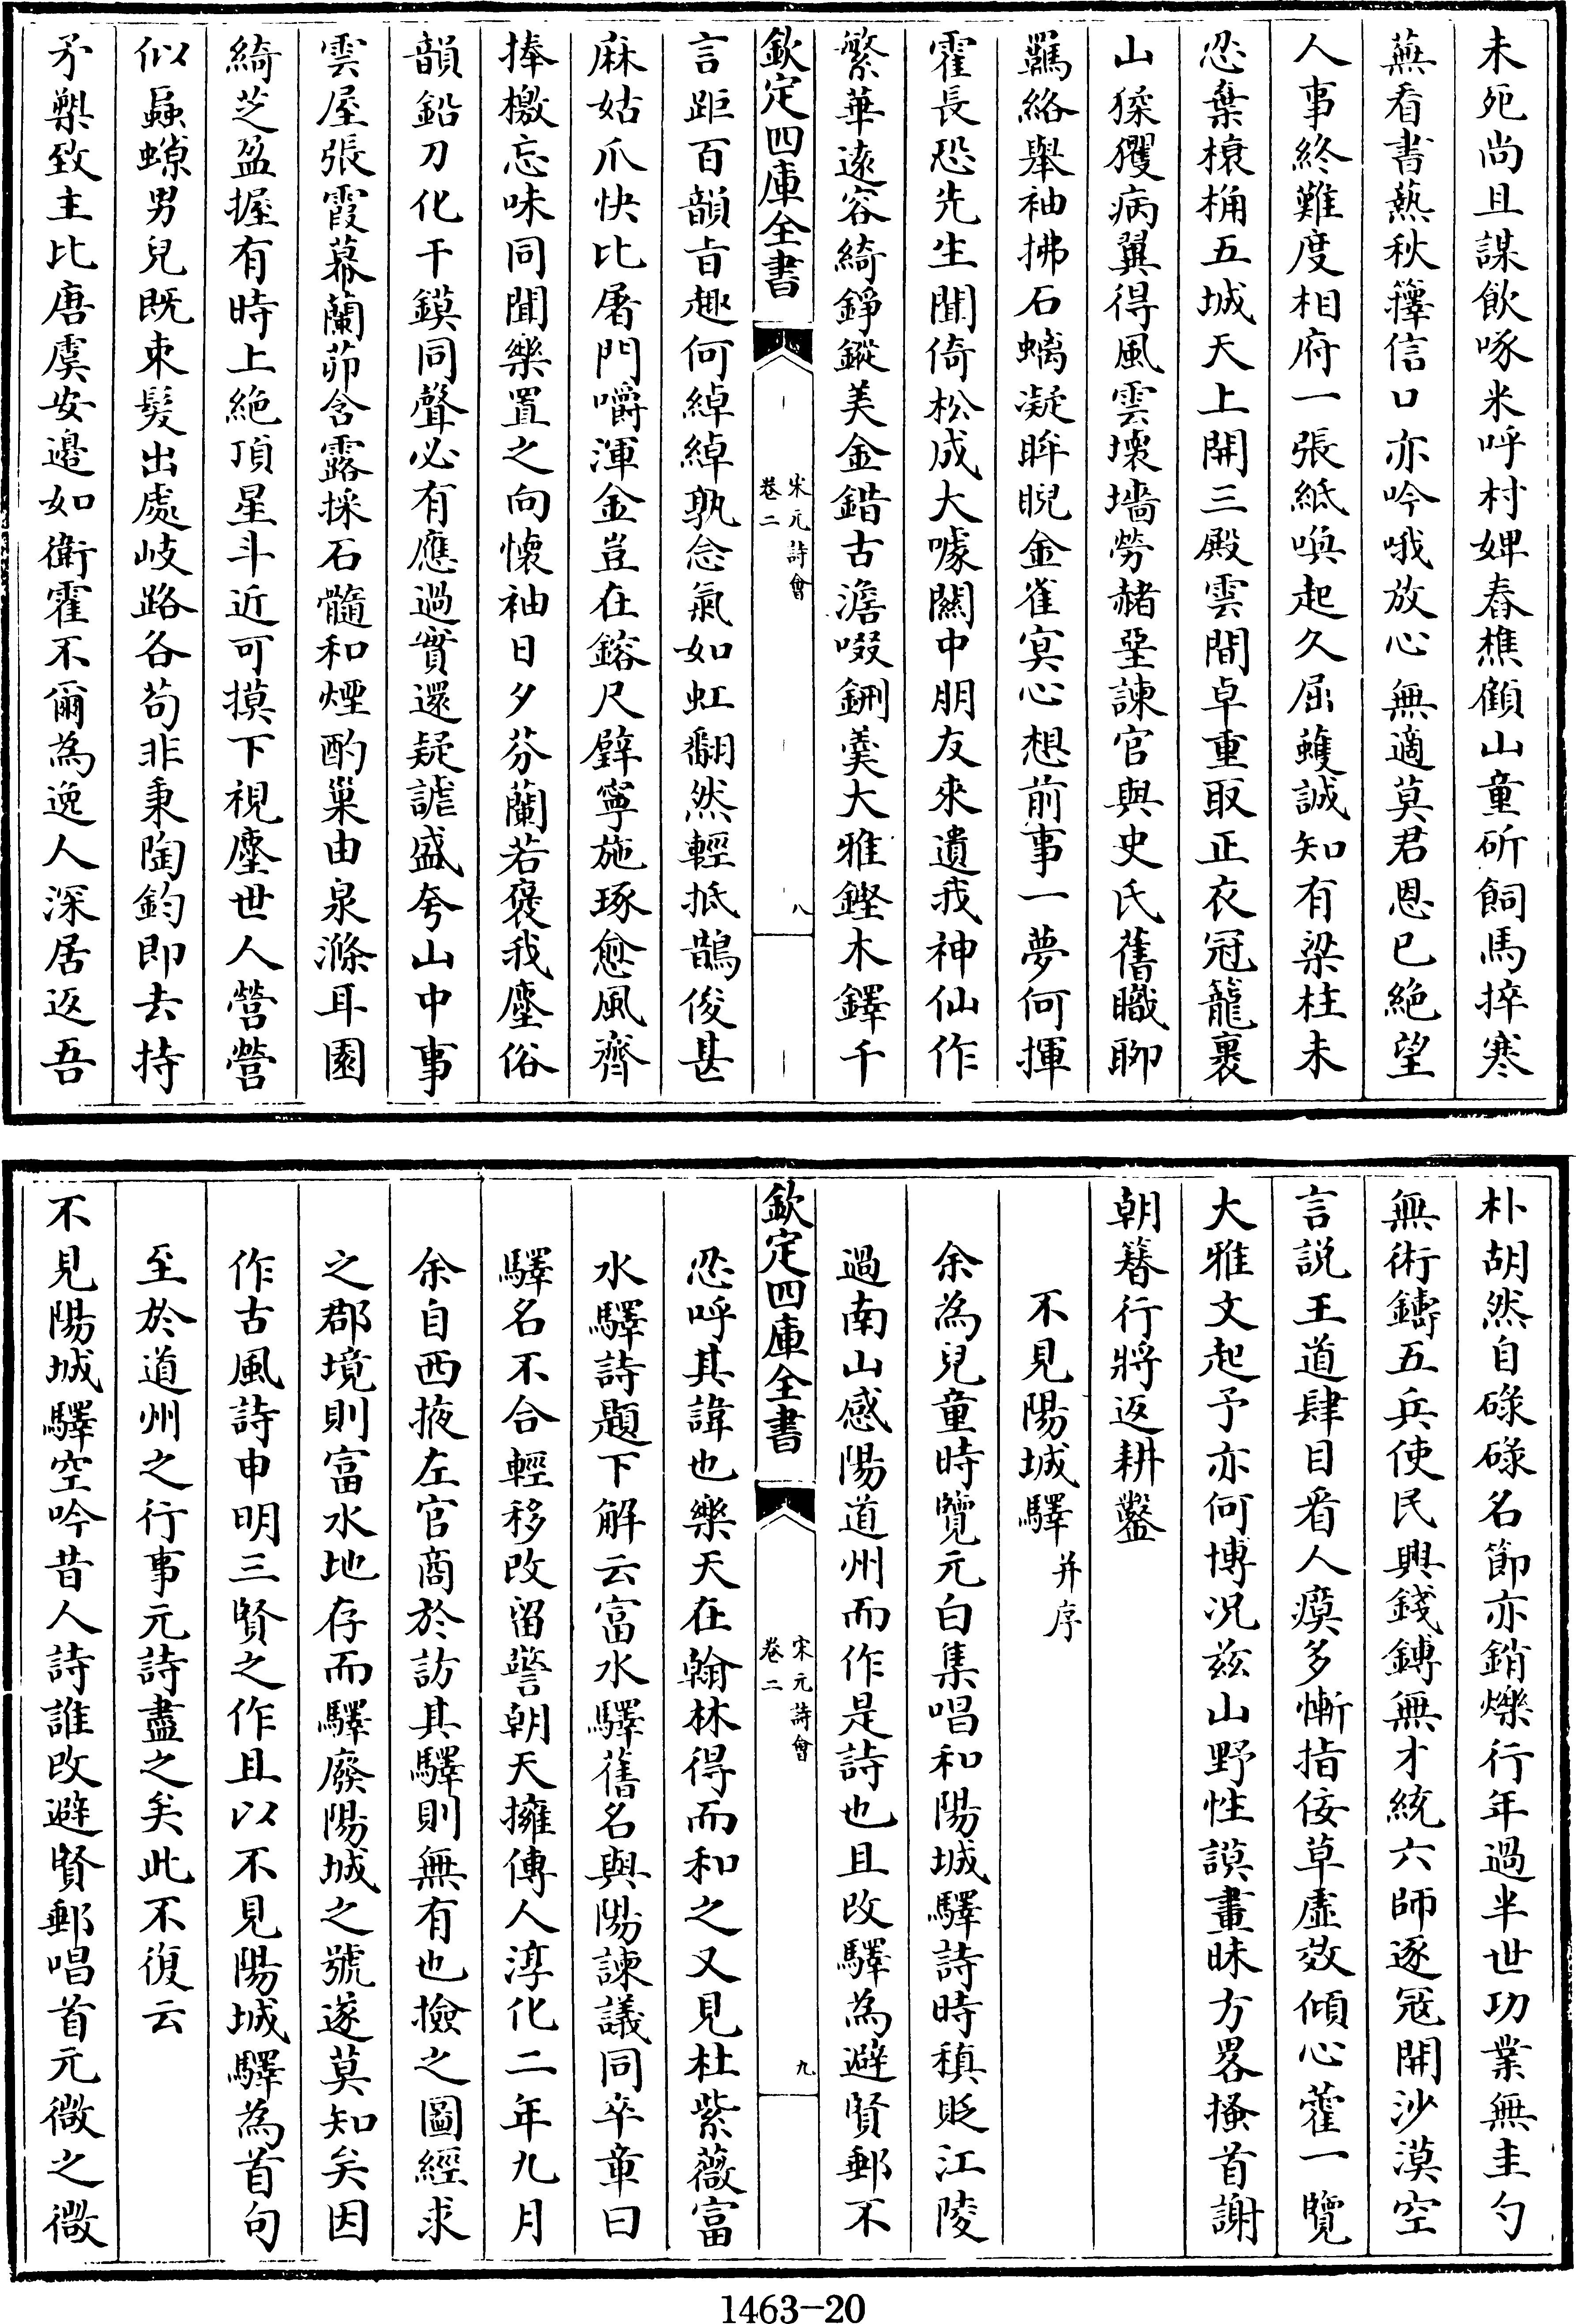 未死尚且謀飲啄米呼村婢舂樵顧山童斫飼馬捽寒
蕪看書熱秋籜信口亦吟哦放心無適莫君恩已絶望
人事終難度相府一張紙喚起久屈蠖誠知有梁柱未
忍棄榱桷五城天上開三殿雲間卓重取正衣冠籠裹
山猱玃病翼得風雲壞墻勞赭堊諫官與史氏舊職聊
羈絡舉袖拂石螭凝眸睨金雀冥心想前事一夢何揮
霍長恐先生聞倚松成大噱關中朋友來遺我神仙作
繁華遠容綺錚鏦美金錯古澹啜鉶羹大雅鏗木鐸千
欽定四庫全書
宋元詩會
卷二
八
言距百韻旨趣何綽綽孰念氣如虹翻然輕抵鵲俊甚
麻姑爪快比屠門嚼渾金豈在鎔尺璧寧施琢愈風齊
捧檄忘味同聞樂置之向懷袖日夕芬蘭若褒我塵俗
韻鉛刀化干鏌同聲必有應過實還疑謔盛夸山中事
雲屋張霞幕蘭茆含露採石髓和煙酌巢由泉滌耳園
綺芝盈握有時上絶頂星斗近可摸下視塵世人營營
似蟲蠓男兒既束髮出處岐路各茍非秉陶鈞即去持
矛槊致主比唐虞安邉如衛霍不爾為逸人深居返吾
朴胡然自碌碌名節亦銷爍行年過半世功業無圭勺
無術鑄五兵使民興錢鎛無才統六師逐冦開沙漠空
言説王道肆目看人瘼多慚指佞草虛效傾心藿一覽
大雅文起予亦何博况兹山野性謨畫昧方畧搔首謝
朝簪行將返耕鑿
不見陽城驛并序
余為兒童時覽元白集唱和陽城驛詩時稹貶江陵
過南山感陽道州而作是詩也且改驛為避賢郵不
欽定四庫全書
宋元詩會
卷二
九
忍呼其諱也樂天在翰林得而和之又見杜紫薇富
水驛詩題下解云富水驛舊名與陽諫議同卒章曰
驛名不合輕移改留警朝天擁傳人淳化二年九月
余自西掖左官商於訪其驛則無有也撿之圖經求
之郡境則富水地存而驛廢陽城之號遂莫知矣因
作古風詩申明三賢之作且以不見陽城驛為首句
至於道州之行事元詩盡之矣此不復云
不見陽城驛空吟昔人詩誰改避賢郵唱首元微之微
1463-20